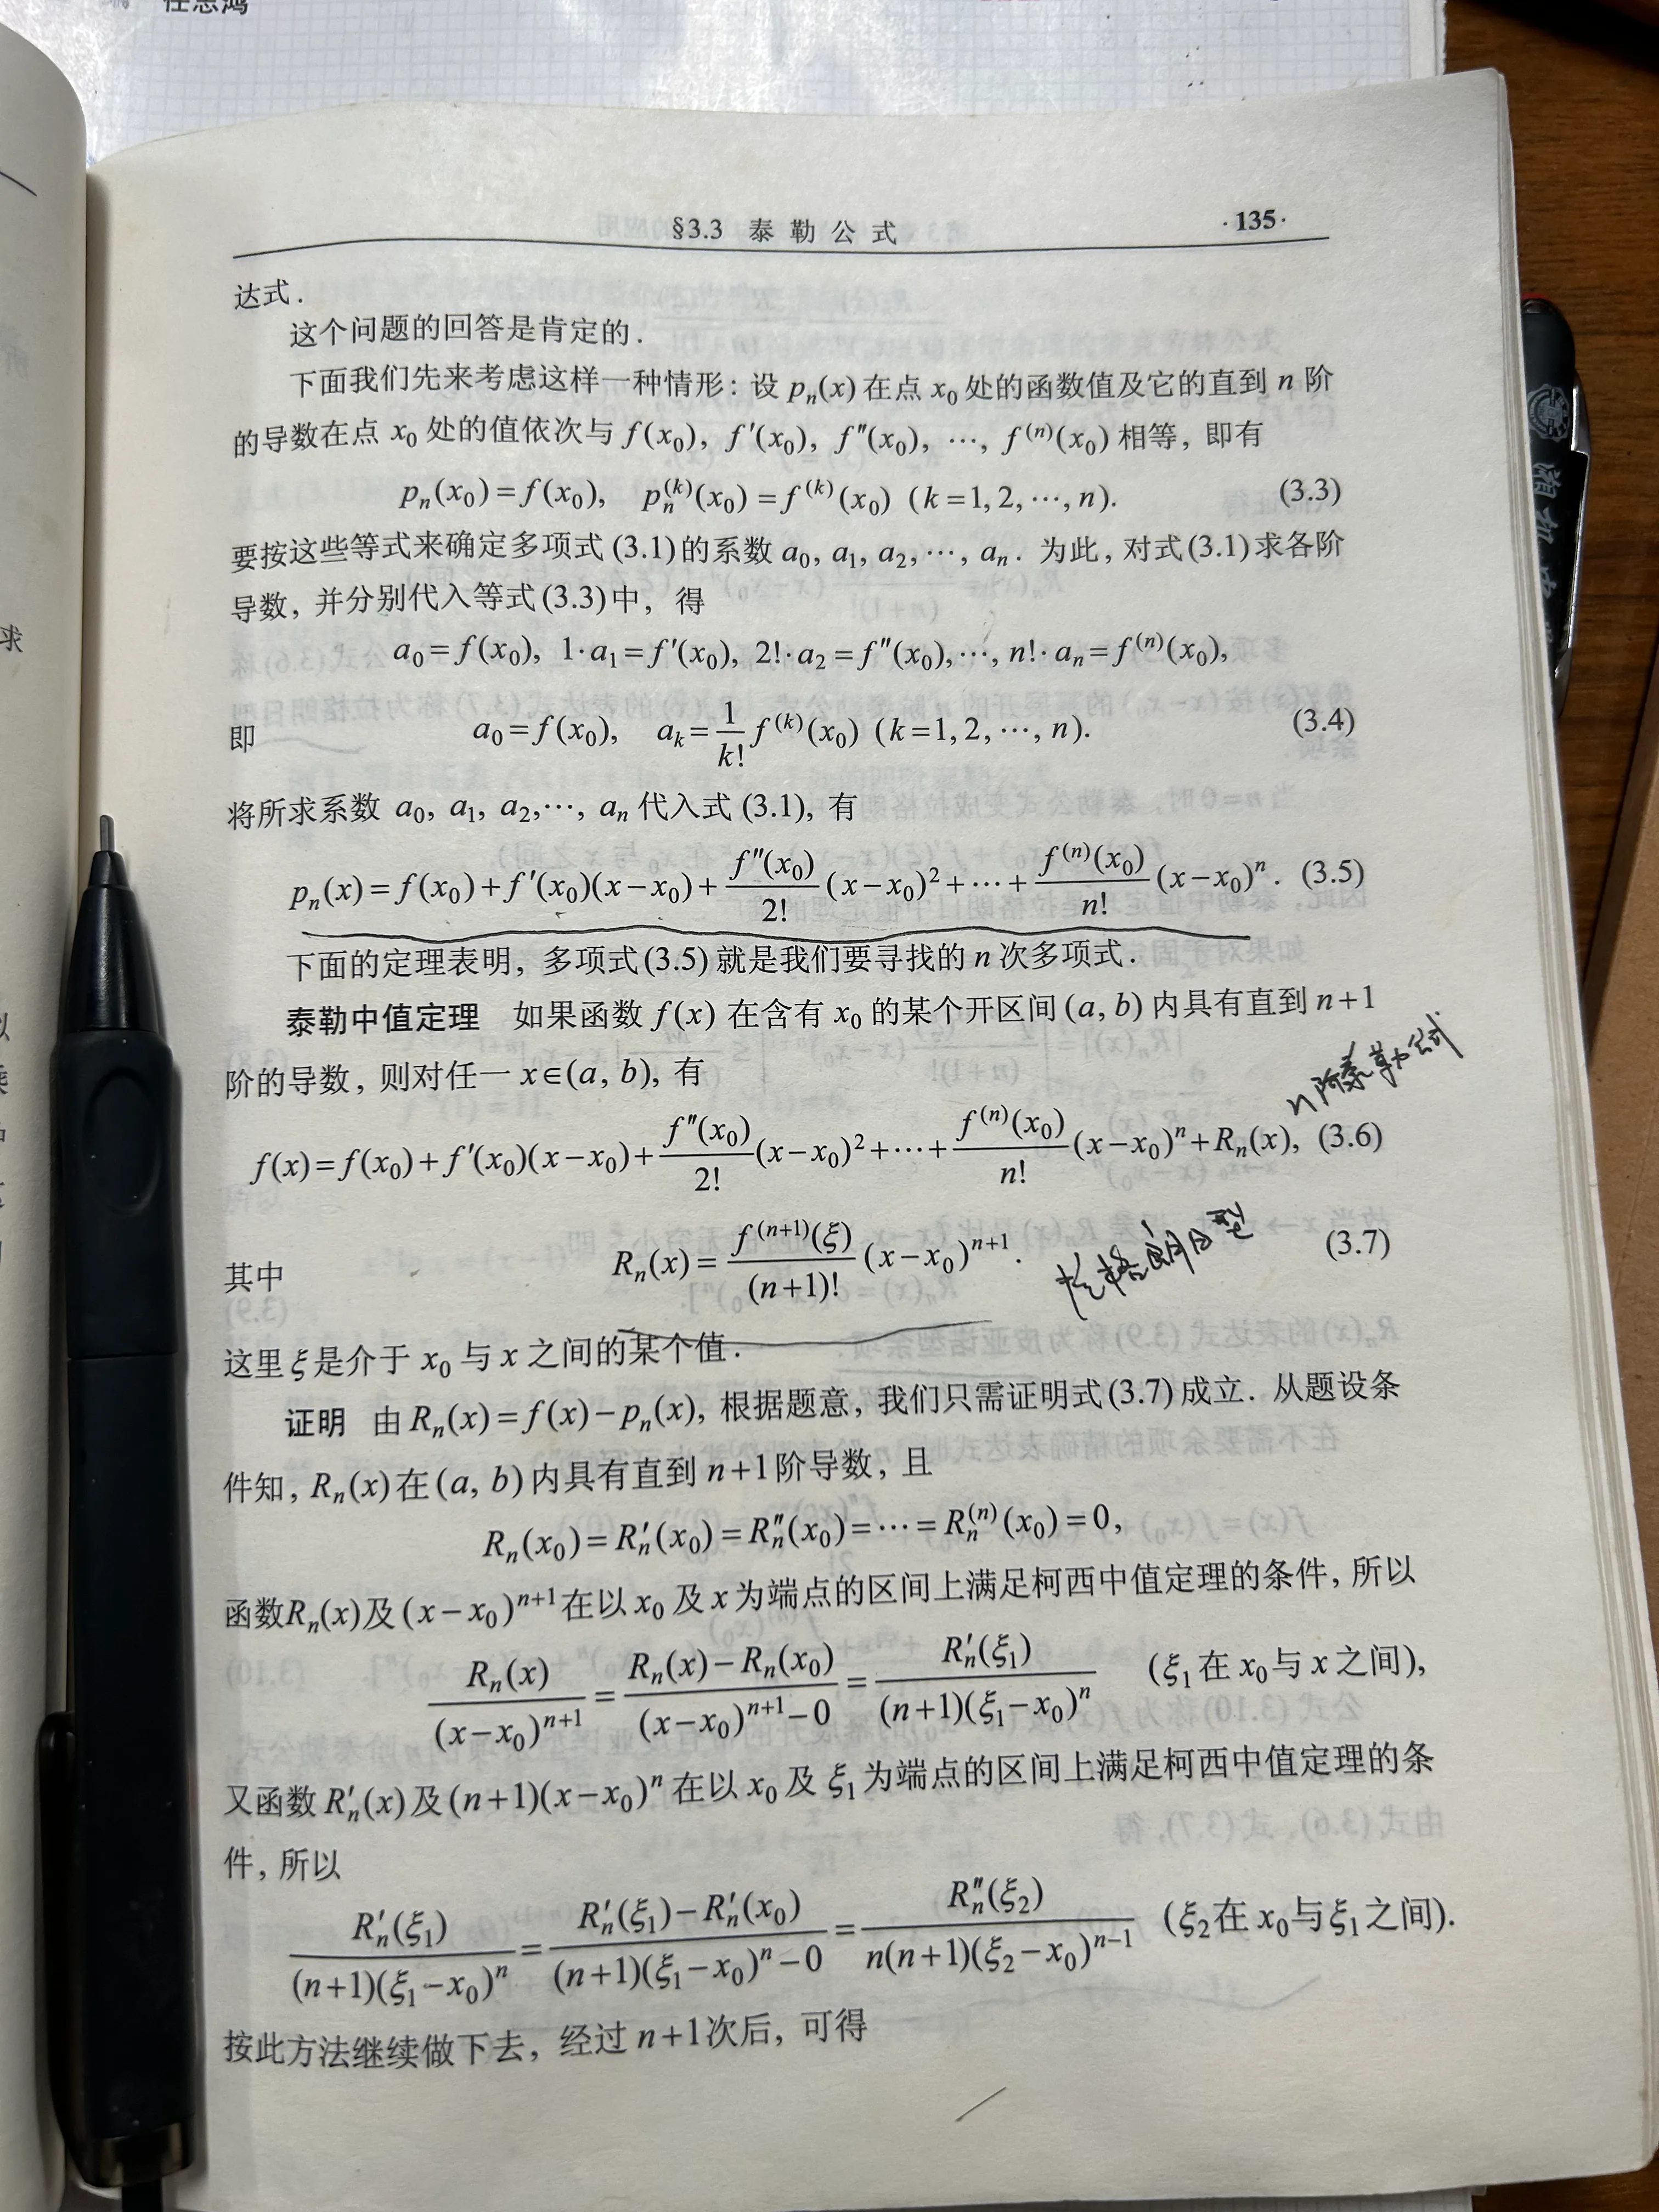 任志鸿
§3.3 泰勒公式 ·135·
达式.
这个问题的回答是肯定的.
下面我们先来考虑这样一种情形: 设 pₙ(x) 在点 x₀ 处的函数值及它的直到 n 阶
的导数在点 x₀ 处的值依次与 f(x₀), f′(x₀), f″(x₀), ⋯, f⁽ⁿ⁾(x₀) 相等, 即有
pₙ(x₀)=f(x₀), pₙ⁽ᵏ⁾(x₀)=f⁽ᵏ⁾(x₀) (k=1,2,⋯,n). (3.3)
要按这些等式来确定多项式(3.1)的系数 a₀, a₁, a₂,⋯, aₙ. 为此, 对式(3.1)求各阶
导数, 并分别代入等式(3.3)中, 得
a₀=f(x₀), 1·a₁=f′(x₀), 2!·a₂=f″(x₀),⋯, n!·aₙ=f⁽ⁿ⁾(x₀),
即 a₀=f(x₀), aₖ=1/k! f⁽ᵏ⁾(x₀) (k=1,2,⋯,n). (3.4)
将所求系数 a₀, a₁, a₂,⋯, aₙ 代入式(3.1), 有
pₙ(x)=f(x₀)+f′(x₀)(x−x₀)+f″(x₀)/2! (x−x₀)²+⋯+f⁽ⁿ⁾(x₀)/n! (x−x₀)ⁿ. (3.5)
下面的定理表明, 多项式(3.5)就是我们要寻找的 n 次多项式.
泰勒中值定理 如果函数 f(x) 在含有 x₀ 的某个开区间(a, b)内具有直到 n+1
阶的导数, 则对任一 x∈(a, b), 有
n阶泰勒公式
f(x)=f(x₀)+f′(x₀)(x−x₀)+f″(x₀)/2! (x−x₀)²+⋯+f⁽ⁿ⁾(x₀)/n! (x−x₀)ⁿ+Rₙ(x), (3.6)
其中 Rₙ(x)=f⁽ⁿ⁺¹⁾(ξ)/(n+1)! (x−x₀)ⁿ⁺¹. 拉格朗日型 (3.7)
这里ξ是介于 x₀ 与 x 之间的某个值.
证明 由 Rₙ(x)=f(x)−pₙ(x), 根据题意, 我们只需证明式(3.7)成立. 从题设条
件知, Rₙ(x)在(a, b)内具有直到 n+1阶导数, 且
Rₙ(x₀)=Rₙ′(x₀)=Rₙ″(x₀)=⋯=Rₙ⁽ⁿ⁾(x₀)=0,
函数Rₙ(x)及(x−x₀)ⁿ⁺¹在以 x₀ 及 x 为端点的区间上满足柯西中值定理的条件, 所以
Rₙ(x)/(x−x₀)ⁿ⁺¹=(Rₙ(x)−Rₙ(x₀))/((x−x₀)ⁿ⁺¹−0)=Rₙ′(ξ₁)/((n+1)(ξ₁−x₀)ⁿ) (ξ₁在 x₀与 x 之间),
又函数 Rₙ′(x)及(n+1)(x−x₀)ⁿ 在以 x₀ 及 ξ₁ 为端点的区间上满足柯西中值定理的条
件, 所以
Rₙ′(ξ₁)/((n+1)(ξ₁−x₀)ⁿ)=(Rₙ′(ξ₁)−Rₙ′(x₀))/((n+1)(ξ₁−x₀)ⁿ−0)=Rₙ″(ξ₂)/(n(n+1)(ξ₂−x₀)ⁿ⁻¹) (ξ₂在 x₀与ξ₁之间).
按此方法继续做下去, 经过 n+1次后, 可得